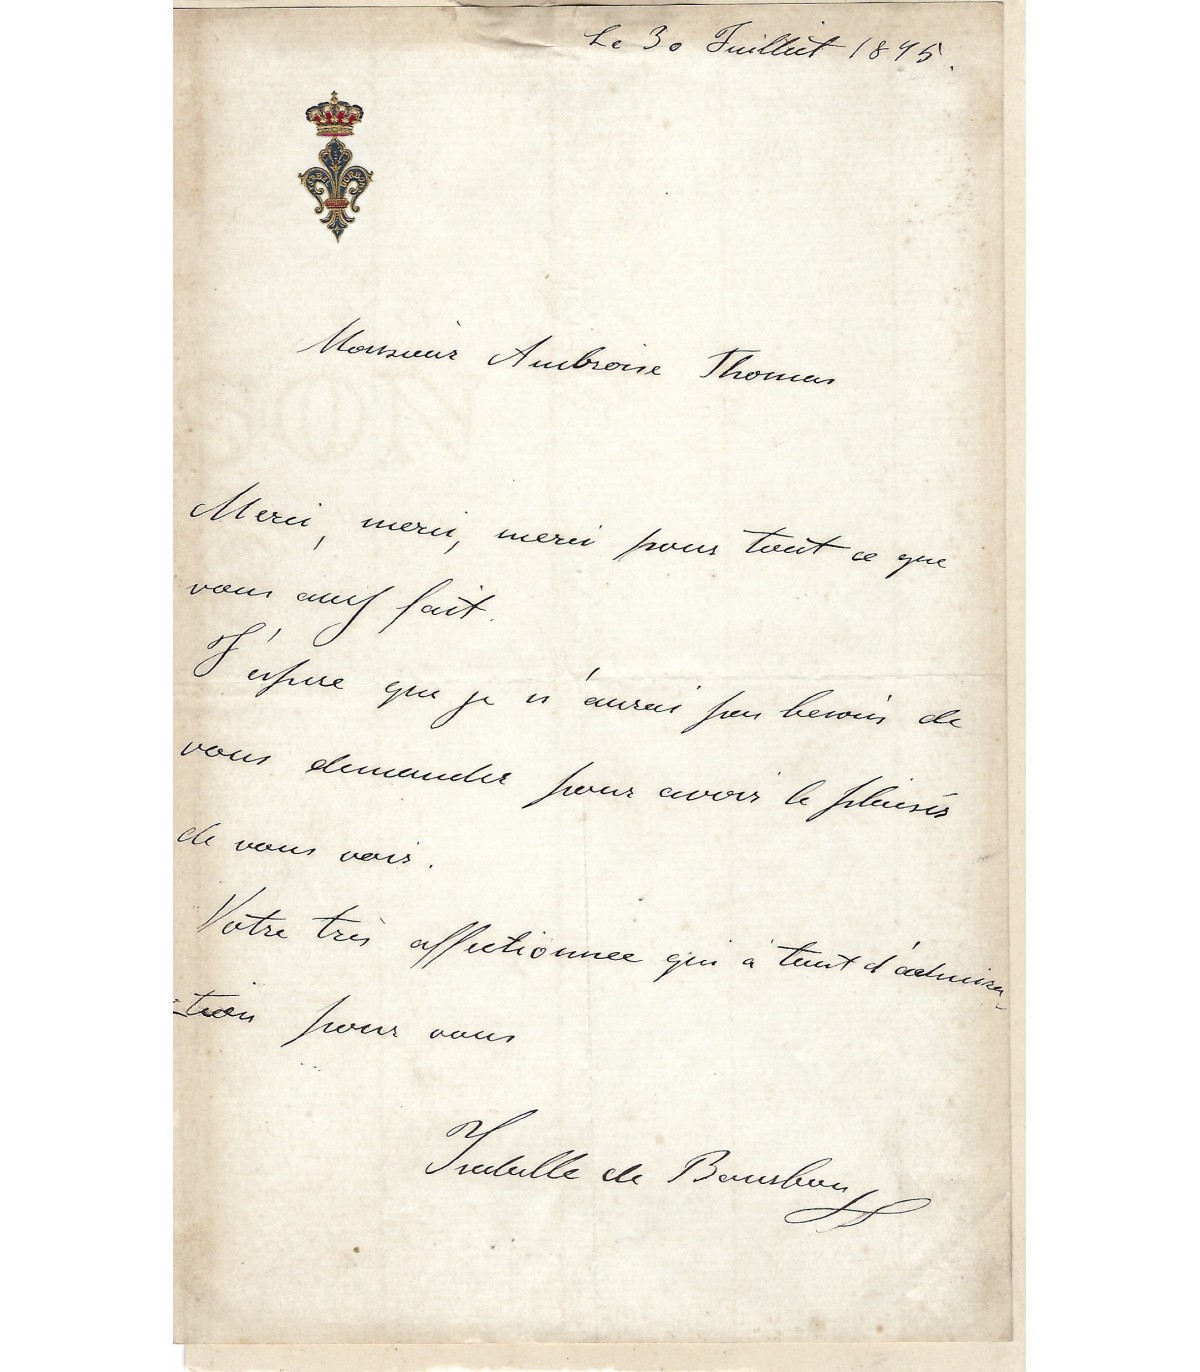 Le 30 Juillet 1895.
Monsieur Ambroise Thomas
Merci, merci, merci pour tout ce que
vous avez fait.
J'espere que je n'aurai pas besoin de
vous demander pour avoir le plaisir
de vous voir.
Votre très affectionnee qui a tant d'admira
-tion pour vous
Isabelle de Bourbon